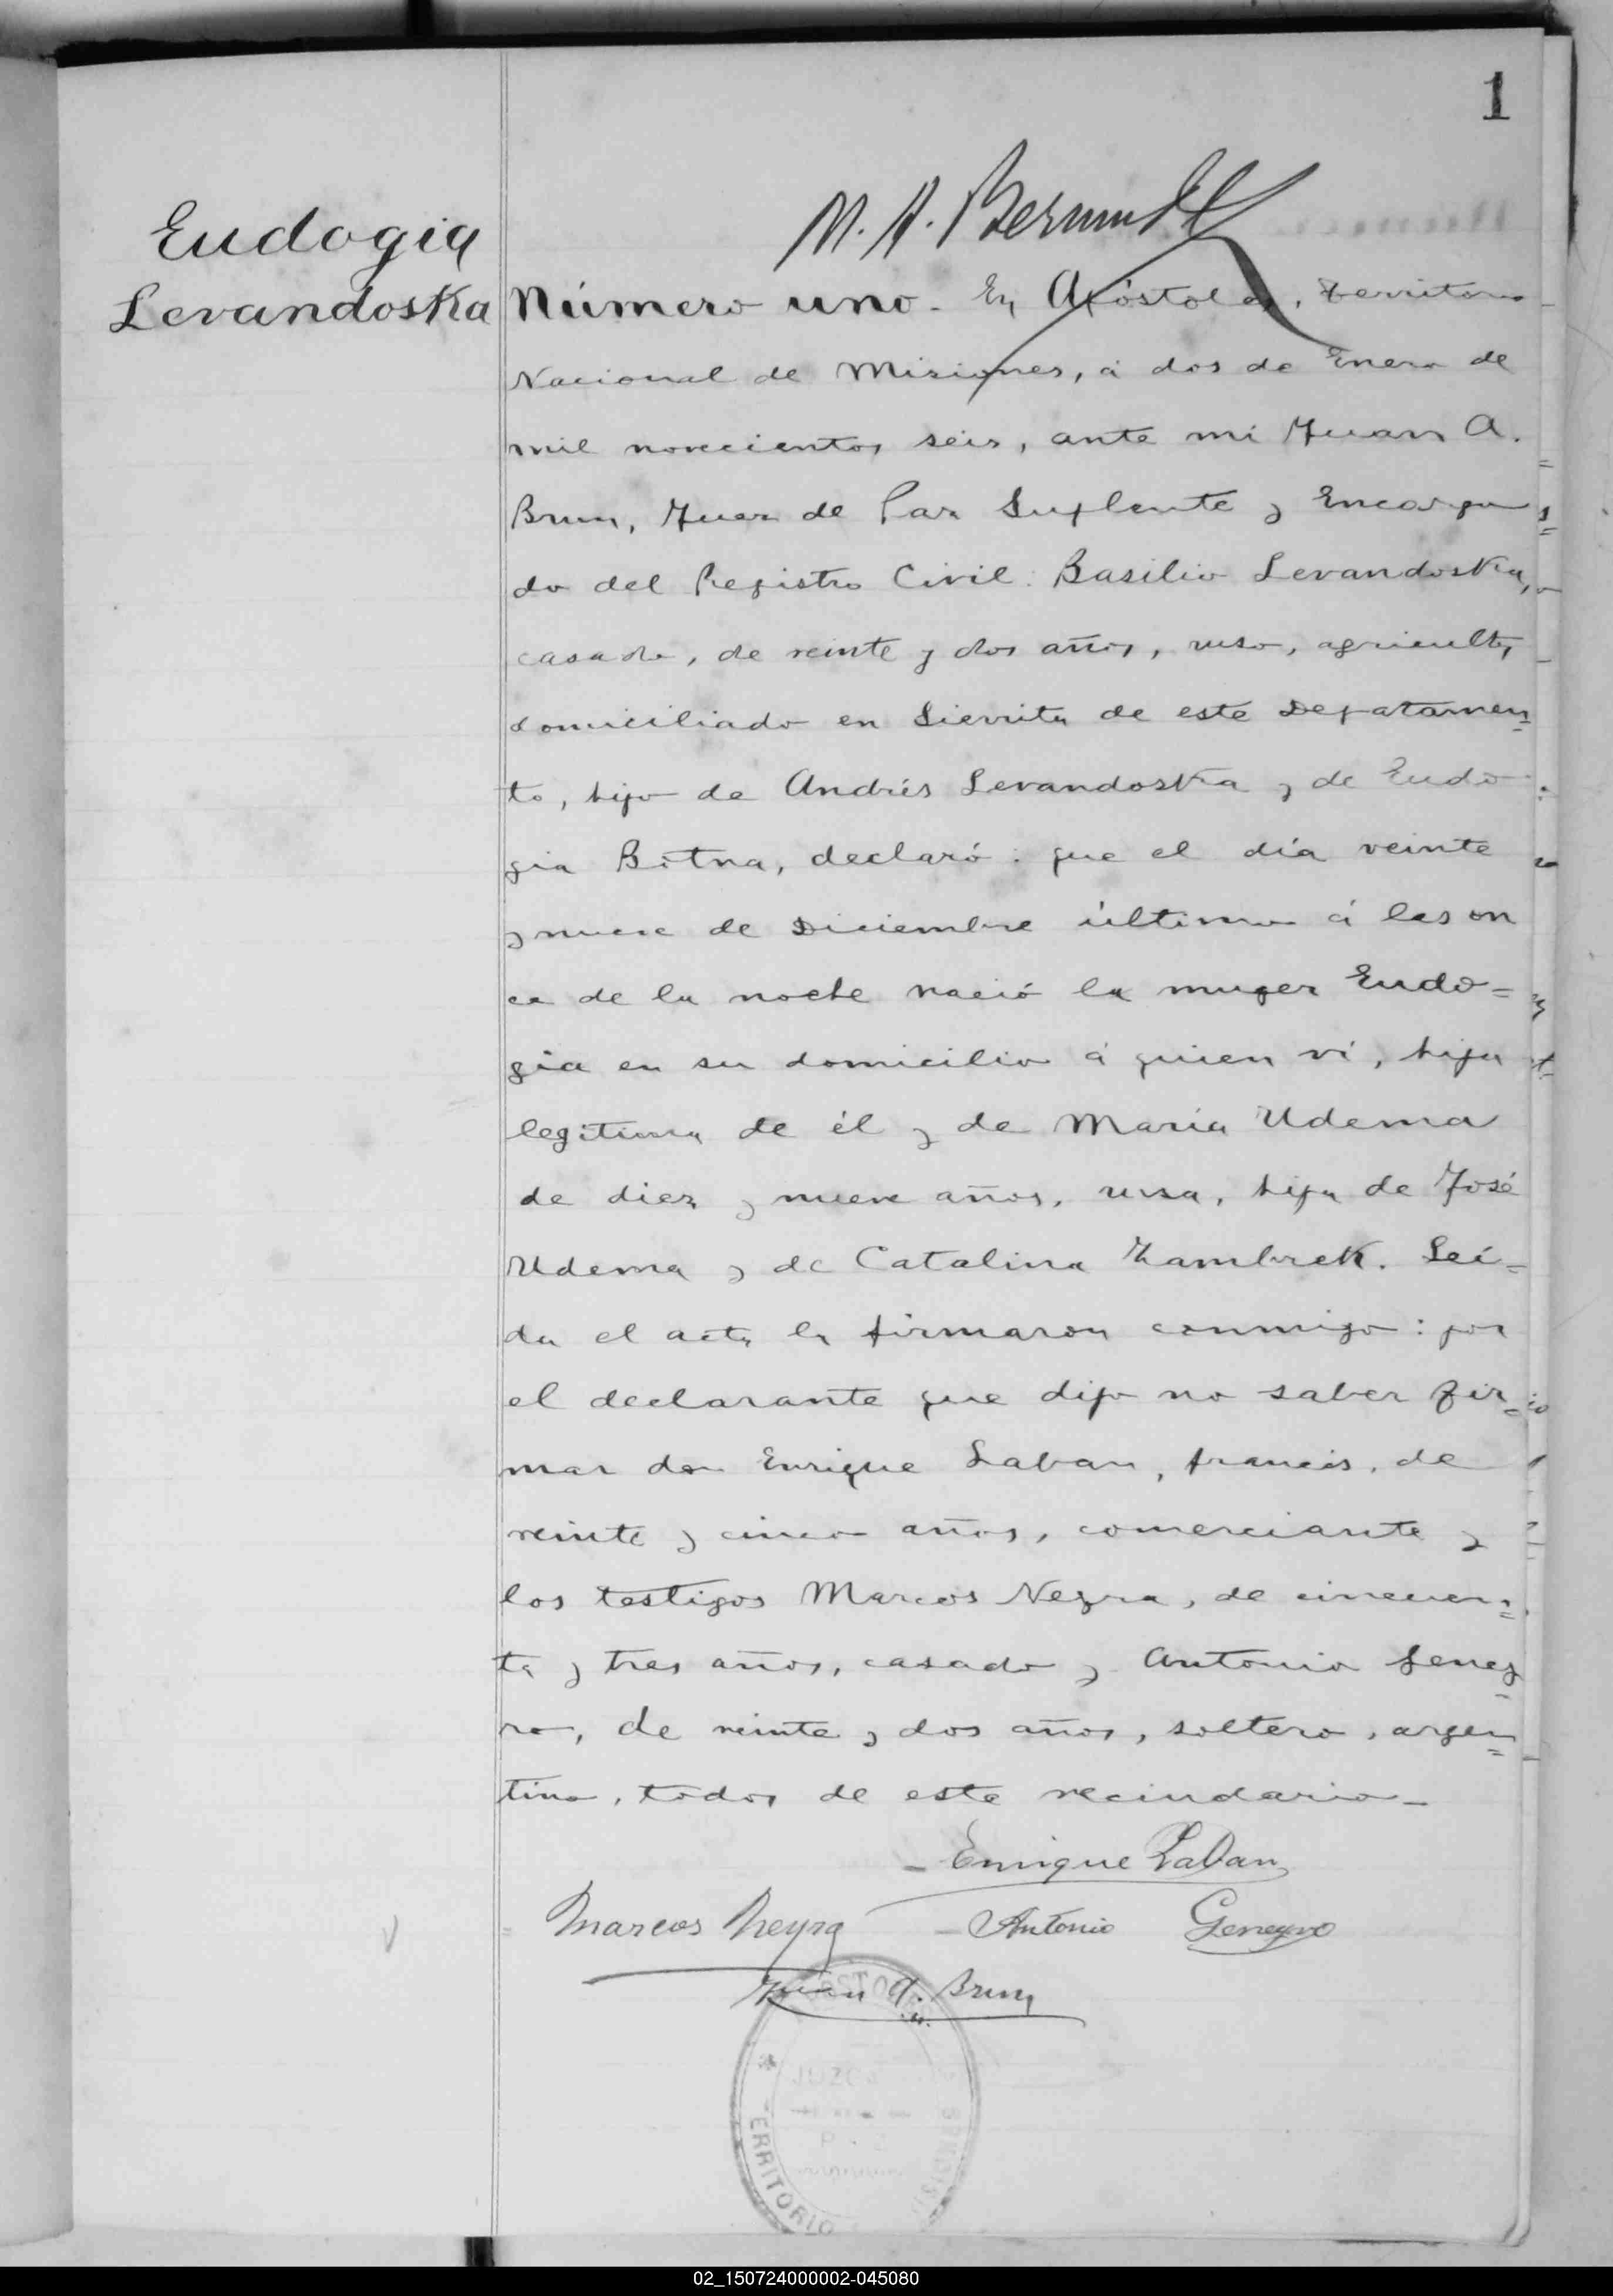 1
M. A. Bermudez
Eudogia
Levandoska
Número uno. En Apóstoles, territorio
Nacional de Misiones, á dos de Enero de
mil novecientos seis, ante mi Juan A.
Brun, Juez de Paz Suplente y Encarga
do del Registro Civil: Basilio Levandoska,
casado, de veinte y dos años, ruso, agricultor,
domiciliado en Sierrita de este Departamen=
to, hijo de Andrés Levandoska y de Eudo
gia Botna, declaró: que el día veinte
y nueve de Diciembre último á las on
ce de la noche nació la muger Eudo=
gia en su domicilio á quien ví, hija
legitima de él y de María Udema
de diez y nueve años, rusa, hija de José
Udema y de Catalina Zambrek. Leí=
da el acta la firmaron conmigo: por
el declarante que dijo no saber fir=
mar don Enrique Laban, francés, de
veinte y cinco años, comerciante y
los testigos Marcos Neyra, de cincuen=
ta y tres años, casado y Antonio Geney
ro, de veinte y dos años, soltero, argen=
tino, todos de este vecindario.
Enrique Laban
Marcos Neyra Antonio Geneyro
Juan A. Brun
JUZG
TERRITORIO
02_150724000002-045080